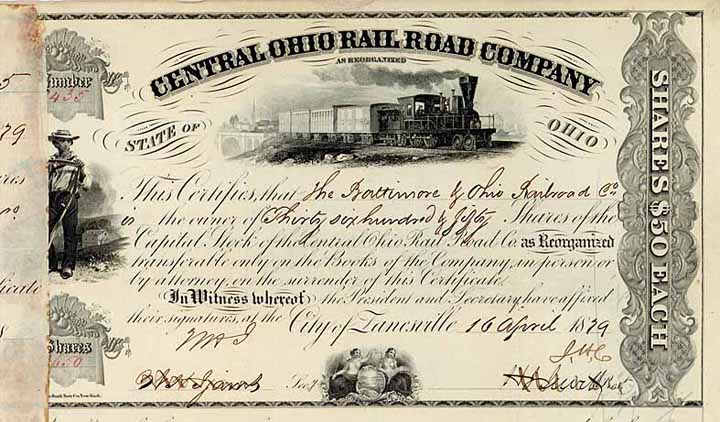 CENTRAL OHIO RAIL ROAD COMPANY
AS REORGANIZED
5
Number
435
STATE OF
OHIO
79
This Certifies, that The Baltimore & Ohio Railroad Co
is the owner of Thirty six hundred & fifty Shares of the
Capital Stock of the Central Ohio Rail Road Co. as Reorganized
transferable only on the Books of the Company, in person or
by attorney, on the surrender of this Certificate.
In Witness whereof the President and Secretary have affixed
their signatures, at the City of Zanesville 16 April 1879
Shares
3650
Secy
SHARES $50 EACH